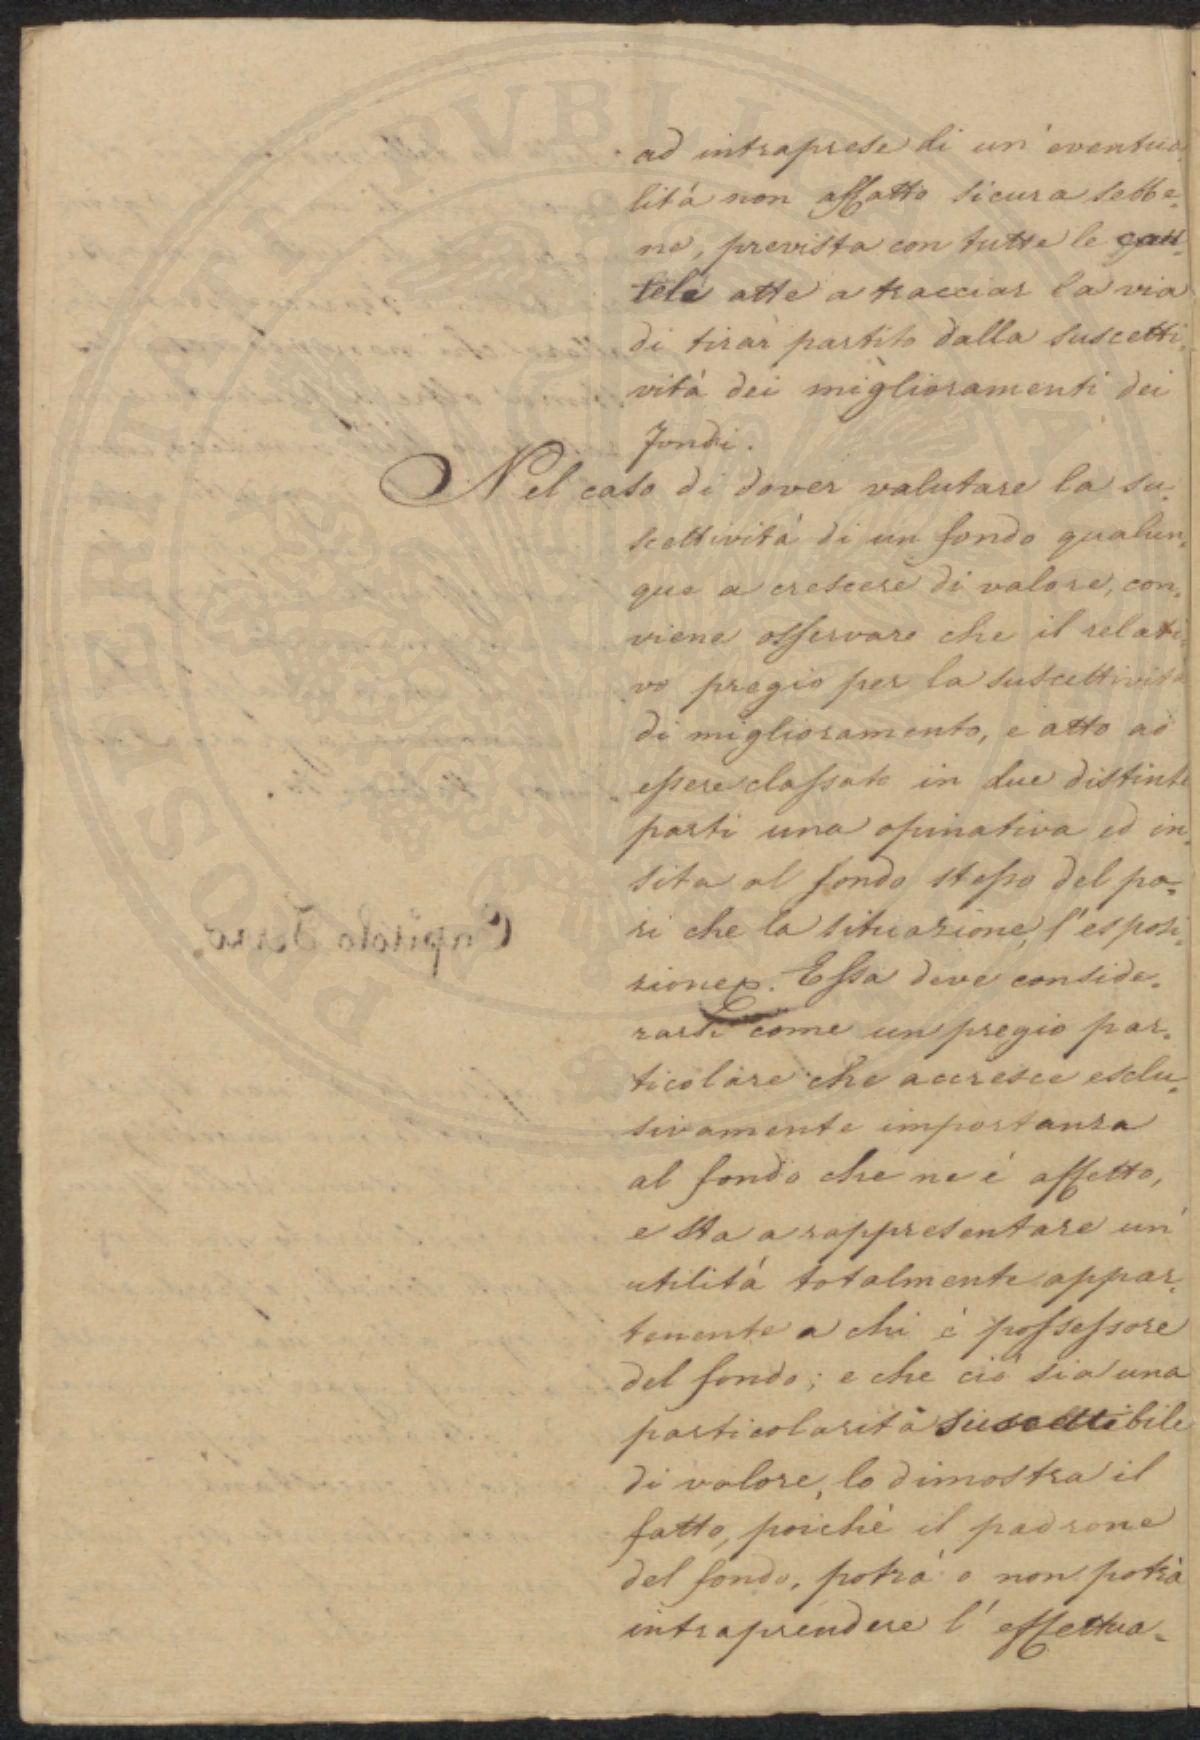 ad intraprese di un' eventua-
litá non affatto sicura sebbe-
ne, prevista con tutte le cau-
tele atte a tracciar la via
di tirar partito dalla suscetti-
vitá dei miglioramenti dei
fondi.
Nel caso di dover valutare la su-
scettivitá di un fondo qualun-
que a crescere di valore, con-
viene osservare che il relati-
vo pregio per la suscettivitá
di miglioramento, e atto ad
essere classato in due distinte
parti una opinativa ed in-
sita al fondo stesso del pa-
ri che la situazione, l'esposi-
zione. Essa deve conside-
rarsi come un pregio par-
ticolare che accresce esclu-
sivamente importanza
al fondo che ne é affetto,
e sta a rappresentare un'
utilitá totalmente appar-
tenente a chi é possessore
del fondo; e che ció sia una
particolaritá suscettibile
di valore, lo dimostra il
fatto, poiché il padrone
del fondo, potrá o non potrá
intraprendere l' effettua-